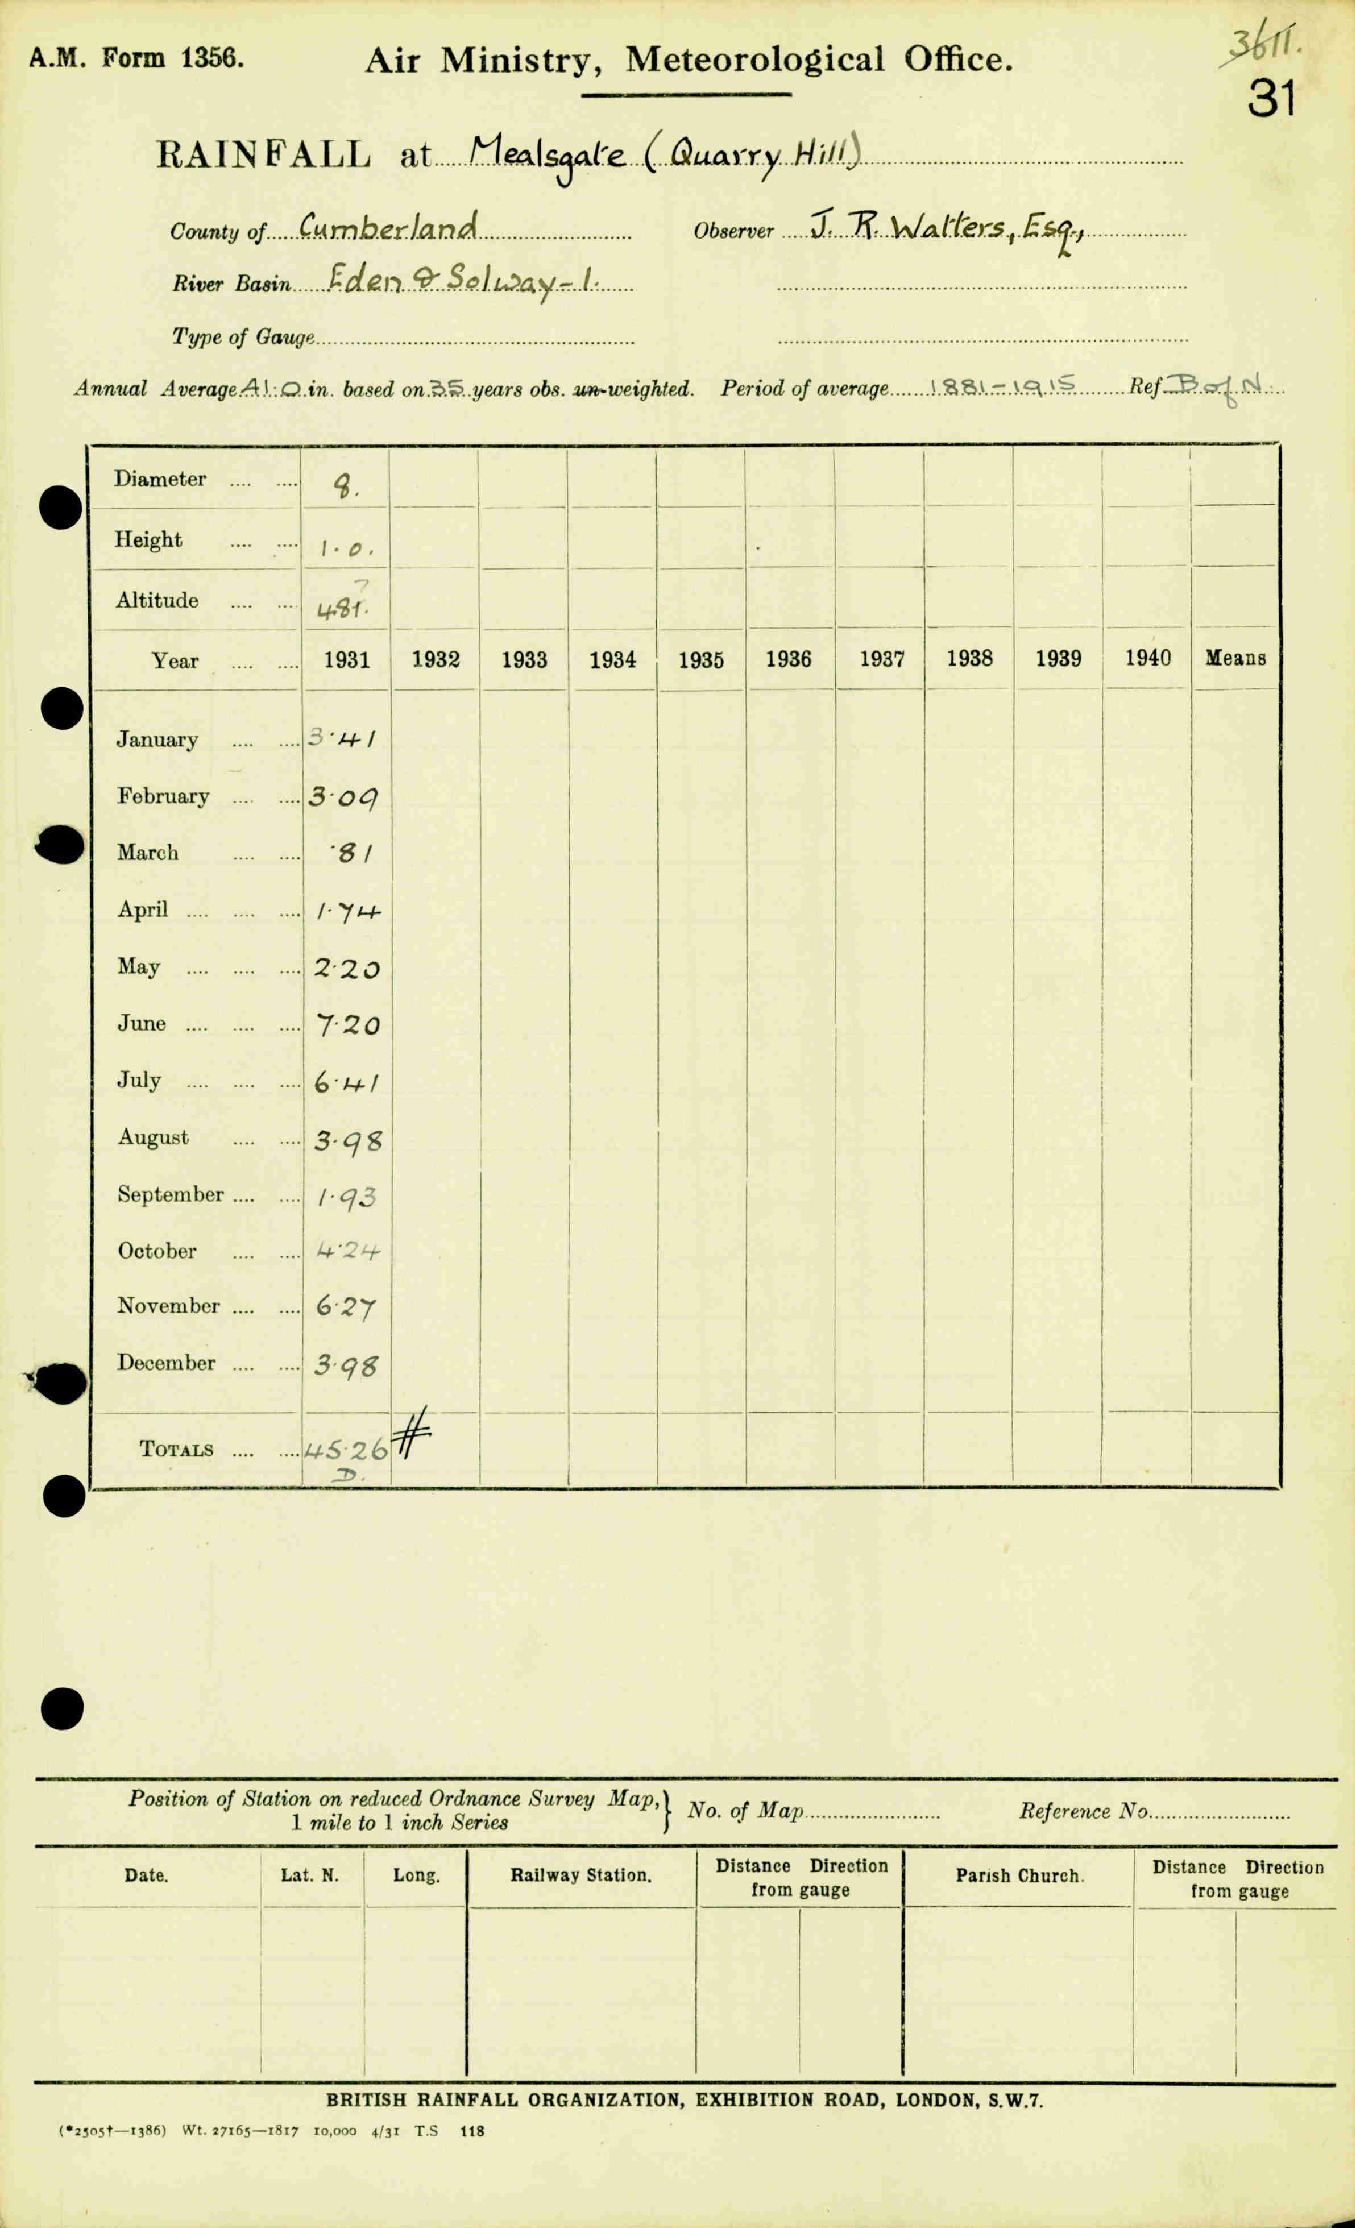 3611.
A.M. Form 1356. Air Ministry, Meteorological Office.
31
RAINFALL at Mealsgate (Quarry Hill)
County of Cumberland Observer J. R. Watters, Esq.,
River Basin Eden & Solway-1.
Type of Gauge
Annual Average 41.0 in. based on 35 years obs. un-weighted. Period of average 1881-1915 Ref B of N.
Diameter .... .... 8.
Height .... .... 1.0.
?
Altitude .... .... 481.
Year .... .... 1931 1932 1933 1934 1935 1936 1937 1938 1939 1940 Means
January .... .... 3.41
February .... .... 3.09
March .... .... .81
April .... .... .... 1.74
May .... .... .... 2.20
June .... .... .... 7.20
July .... .... .... 6.41
August .... .... 3.98
September .... .... 1.93
October .... .... 4.24
November .... .... 6.27
December .... .... 3.98
TOTALS .... .... 45.26 #
D.
Position of Station on reduced Ordnance Survey Map, } No. of Map Reference No.
1 mile to 1 inch Series
Date. Lat. N. Long. Railway Station. Distance Direction from gauge Parish Church. Distance Direction from gauge
BRITISH RAINFALL ORGANIZATION, EXHIBITION ROAD, LONDON, S.W.7.
(*2505†—1386) Wt. 27165—1817 10,000 4/31 T.S 118